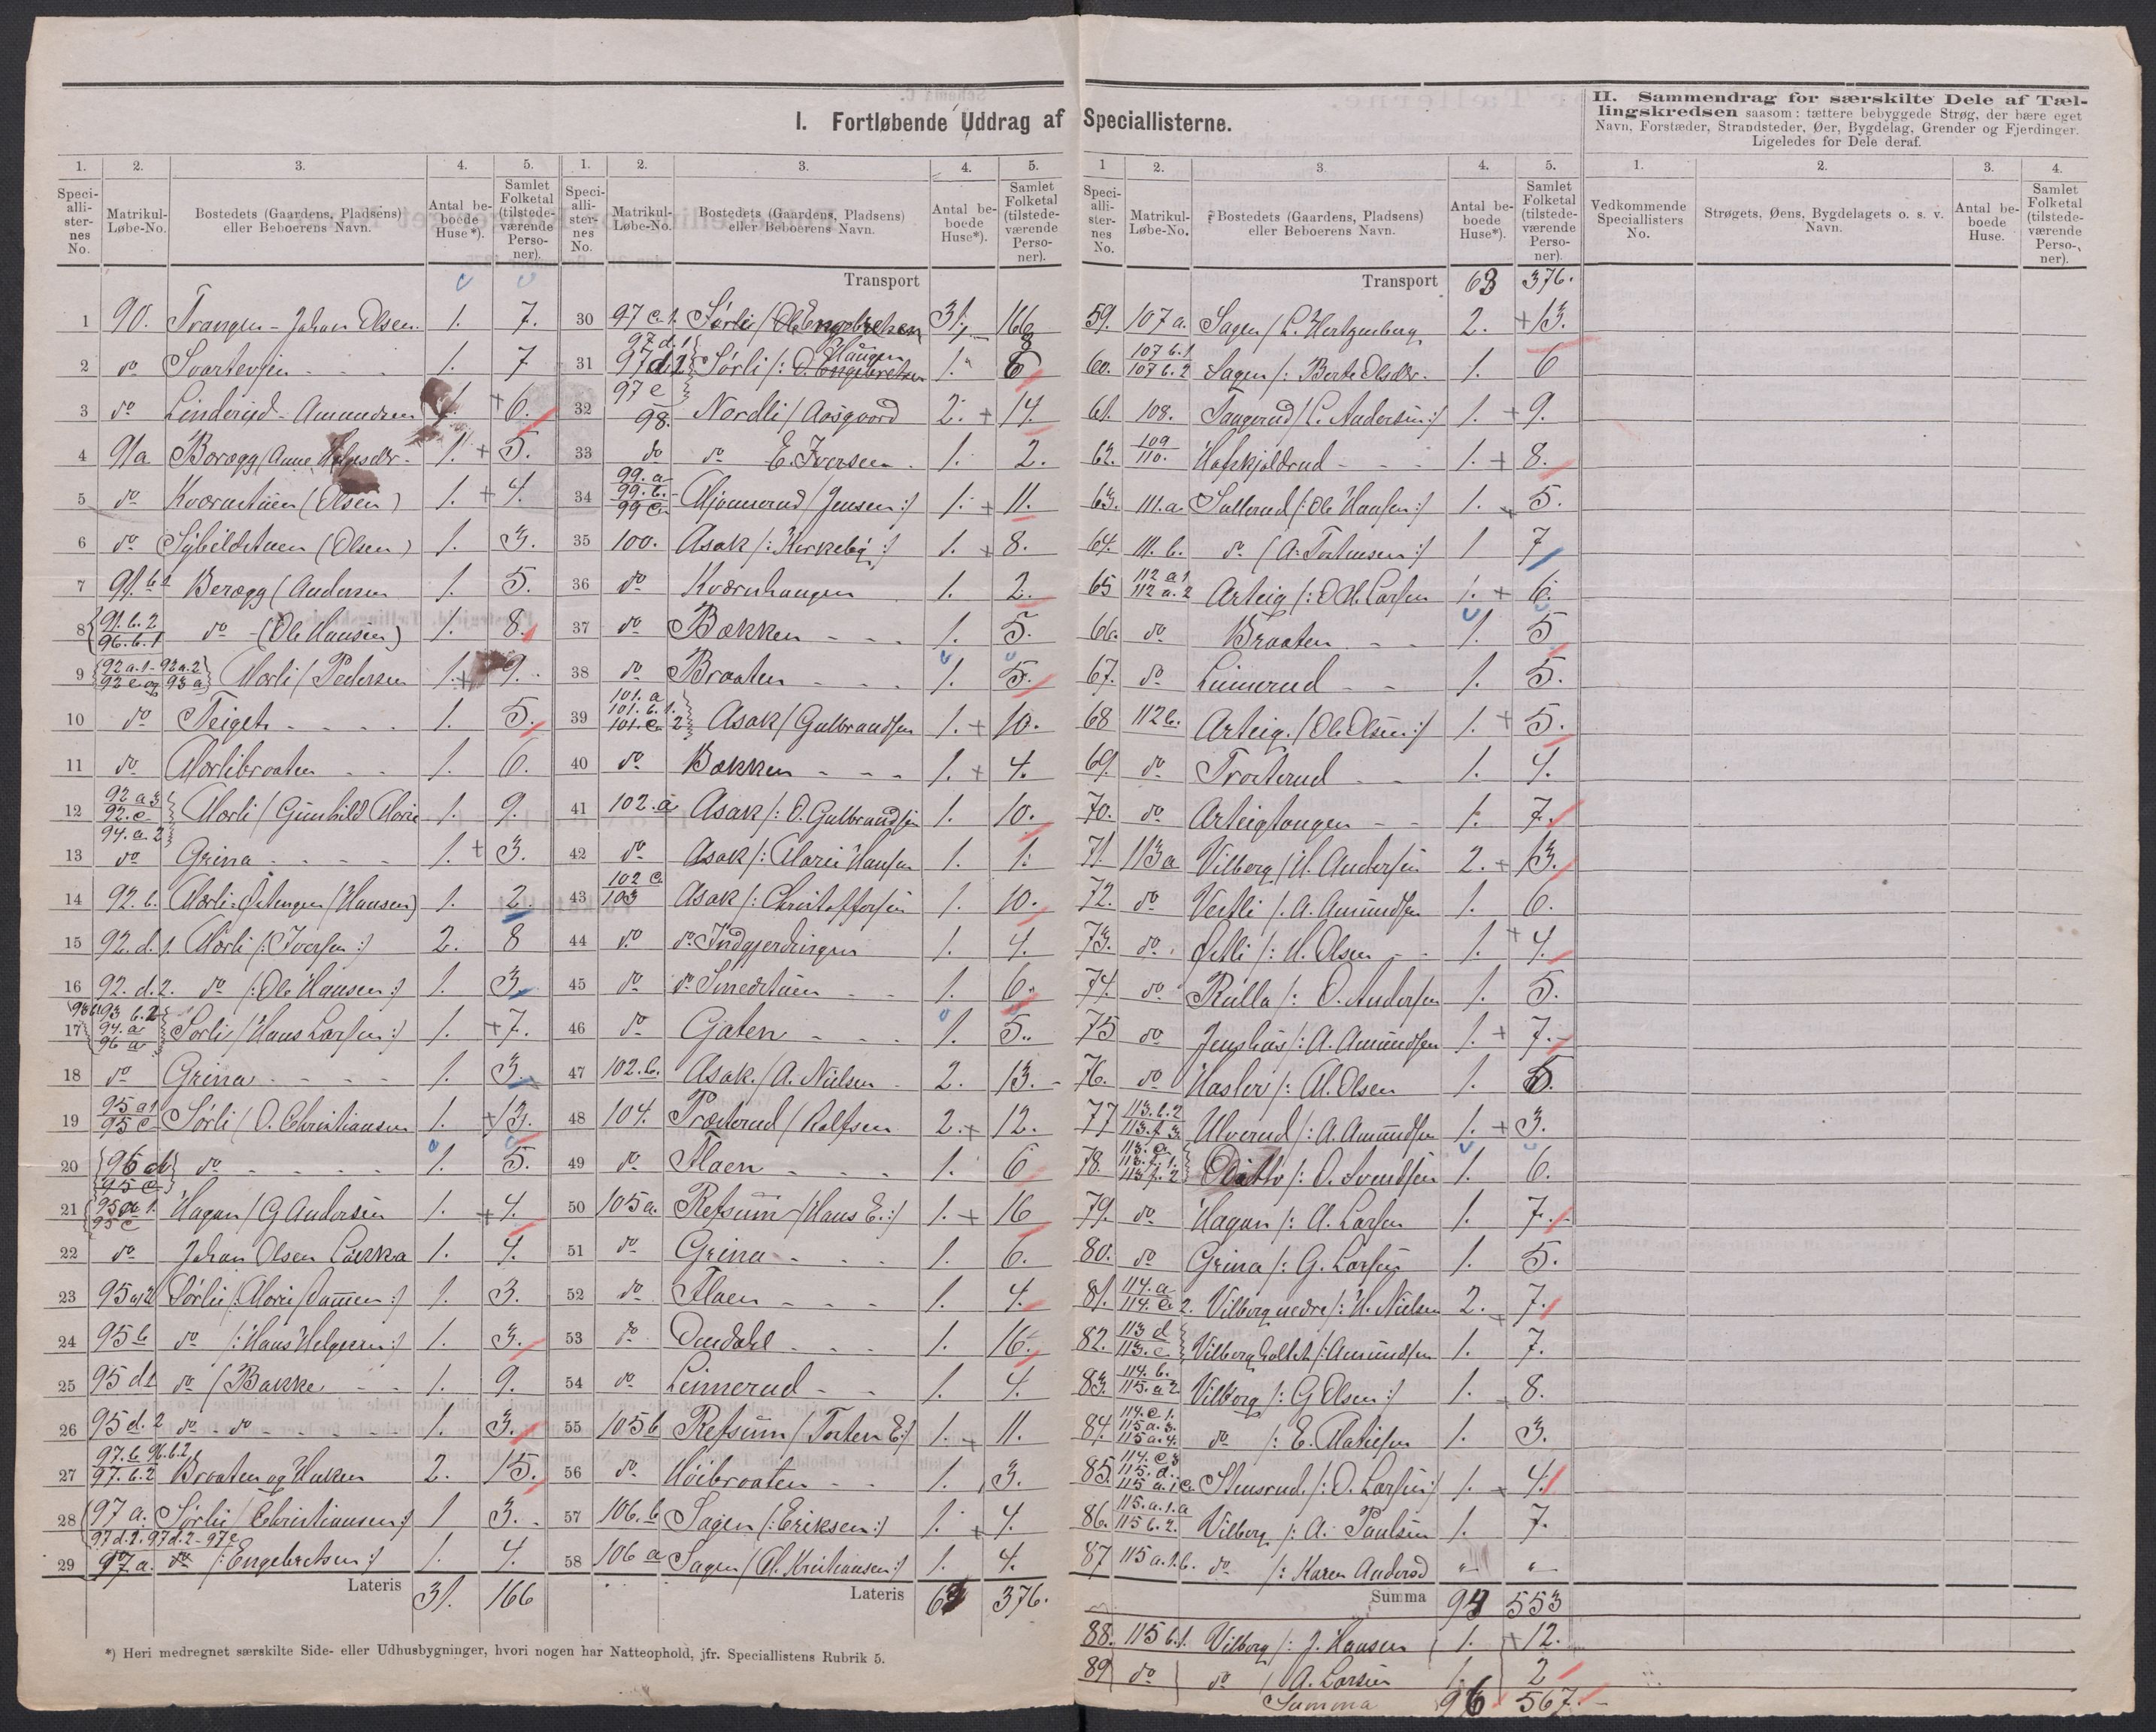 I. Fortløbende Uddrag af Speciallisterne.
1. 2. 3. 4. 5.
Speciallisternes No. Matrikul-Løbe-No. Bostedets (Gaardens, Pladsens) eller Beboerens Navn. Antal beboede Huse*). Samlet Folketal (tilstedeværende Personer).
1 90. Trangen - Johan Olsen. 1. 7.
2 do Svartevjen - - - 1. 7
3 do Linderud - Amundsen 1. + 6.
4 91a Borægg (Anne Holgesdr - 1. + 5.
5 do Kværnstuen (Olsen) 1. + 4.
6 do Sybildstuen (Olsen) 1. 3.
7 91.b.1 Berægg (Andersen 1. 5.
8 91.b.2 96.b.1 do - (Ole Hansen) 1. 8.
9 92a.1-92a.2 92c og 93a Mørli / Pedersen 1. + 9.
10 do Teiget - - - - 1. 5.
11 do Mørlibraaten - - 1. 6.
12 92a3 92.c 94.a.2 Mørli / Gunhild Marie 1. 9.
13 do Grina - - - - 1. + 3.
14 92.b. Mørli-Østengen (Hansen) 1. 2.
15 92.d.1. Mørli /: Iversen :/ 2. 8
16 92.d.2. do /: Ole Hansen :/ 1. 3.
17 93b1 93 b.2 94.a 96 a Sørli / Hans Larsen :/ 1. + 7.
18 do Grina - - - - 1. 3.
19 95a1 95c Sørli / O. Christiansen 1. + 13.
20 96 d 95 e do - - - - 1. 5.
21 95a1. 95c Hagan / G Andersen 1. + 4.
22 do Johan Olsen Løkka 1. 4.
23 95a2 Sørli /: Marie Dammen :/ 1. 3.
24 95b do /: Hans Helgesen :/ 1. 3.
25 95d1 do / Bakke - - 1. 9.
26 95d.2 do - do - - - - 1. 3.
27 97.b 96.b.2 97.b.2 Braaten og Heken 2. 15.
28 97 a. Sørli / Christiansen :/ 1 3.
29 97d.2. 97d.2 - 97c 97.a. do /: Engebretsen :/ 1. 4.
Lateris 31. 166
*) Heri medregnet særskilte Side- eller Udhusbygninger, hvori nogen har Natteophold, jfr. Speciallistens Rubrik 5.
1. 2. 3. 4. 5.
Speciallisternes No. Matrikul-Løbe-No. Bostedets (Gaardens, Pladsens) eller Beboerens Navn. Antal beboede Huse*). Samlet Folketal (tilstedeværende Personer).
Transport 31. 166
30 97c.1. Sørli / O. Engebretsen 1. 8
31 97d.1 97d.2 97 e Sørli /: O. Haugen 1. 6
32 98. Nordli / Aasgaard 2. + 14.
33 do do E. Iversen. 1. 2.
34 99.a 99.b. 99c. Mjønnerud / Jensen :/ 1. + 11.
35 100. Asak /: Kirkeby :/ 1. + 8.
36 do Kværnhaugen 1. 2.
37 do Bakken - - - 1. 5.
38 do Braaten - - - 1. 5.
39 101.a 101.b.1. 101.c.2 Asak / Gulbrandsen 1. + 10.
40 do Bakken - - - 1. + 4.
41 102.a Asak /: O. Gulbrandsen 1. 10.
42 do Asak /: Marie Hansen 1. 1.
43 102 c. 103 Asak /: Christoffersen 1. 10.
44 do do Indgjerdingen 1. 4.
45 do do Smedstuen - - 1. 6.
46 do Gjaten - - - 1. 5.
47 102.b. Asak. / A. Nielsen - 2. 13. -
48 104. Præsterud / Rolfsen 2. + 12.
49 do Flaen - - - 1. 6
50 105a. Refsum / Hans E. :/ 1. + 16
51 do Grina - - - 1. 6.
52 do Flaen - - - 1. 4.
53 do Omdahl - - - 1. 16.
54 do Leimerud - - 1. 4.
55 105b Refsum / Torsten E :/ 1. + 11.
56 do Høibraaten - - 1. 3.
57 106.b Sagen /: Eriksen :/ 1. + 4.
58 106 a Sagen / M. Kristiansen :/ 1. 4.
Lateris 63 376.
1 2. 3. 4. 5.
Speciallisternes No. Matrikul-Løbe-No. Bostedets (Gaardens, Pladsens) eller Beboerens Navn. Antal beboede Huse*). Samlet Folketal (tilstedeværende Personer).
Transport 63 376.
59. 107a. Sagen / L. Hertzenberg 2. + 13.
60. 107 b.1 107 b.2 Sagen /: Berte Olsdtr. 1. 6
61. 108. Tangerud / C. Andersen :/ 1. + 9.
62. 109 110. Hafskjoldrud - - - 1. + 8.
63. 111.a Sullerud /: Ole Hansen :/ 1. + 5.
64. 111.b. do / A. Torstensen :/ 1 7
65 112 a 1 112 a.2 Arteig /: O. M. Larsen 1. + 6.
66. do Braaten - - 1. 5
67. do Leimerud - - 1. 5.
68 112b. Arteig. / Ole Olsen :/ 1. + 5.
69. do Trosterud - - 1. 4.
70. do Arteigtangen - - 1. 7.
71. 113a Vilberg / H. Andersen 2. + 13.
72. do Vestli /. A. Amundsen 1. 6.
73. do Østli /: H. Olsen - - 1. + 4.
74. do Rulla /: O. Andersen 1. 5.
75 do Jenshus /: A. Amundsen 1. + 7.
76. do Hasler /: M. Olsen 1. 5.
77 113.b.2 113.f.3. Ulverud /: A. Amundsen 1. + 3.
78. 113.a 113.f.1. 113f.2 Ditto /: O. Svendsen 1. 6.
79. do Hagan /: A. Larsen 1. 7.
80. do Grina /: G. Larsen 1. 5.
81. 114.a 114.c.2. Vilberg nedre /: H. Nielsen 2. + 7.
82. 113 d 113.c. Vilbergholtet /: Amundsen 1. 7.
83. 114.b. 115.a 2 Vilberg /: G Olsen :/ 1. 8.
84. 114.c 1. 115a.3. 115a.4. do /: E. Matiesen 1. 3.
85. 114.c 3 115.d. 115 a.1c Stensrud. /: O. Larsen :/ 1. 4.
86. 115.a.1.a 115b.2. Vilberg /: A. Paulsen 1. 7.
87 115a.1.b. do /: Karen Andersd " "
Summa 94 553
88. 115b.1. Vilberg /: J. Hansen 1. + 12.
89 do do / A. Larsen 1. 2
Summa 96 567.
II. Sammendrag for særskilte Dele af Tællingskredsen saasom: tættere bebyggede Strøg, der bære eget Navn, Forstæder, Strandsteder, Øer, Bygdelag, Grender og Fjerdinger. Ligeledes for Dele deraf.
1. 2. 3. 4.
Vedkommende Speciallisters No. Strøgets, Øens, Bygdelagets o. s. v. Navn. Antal beboede Huse. Samlet Folketal (tilstedeværende Personer).